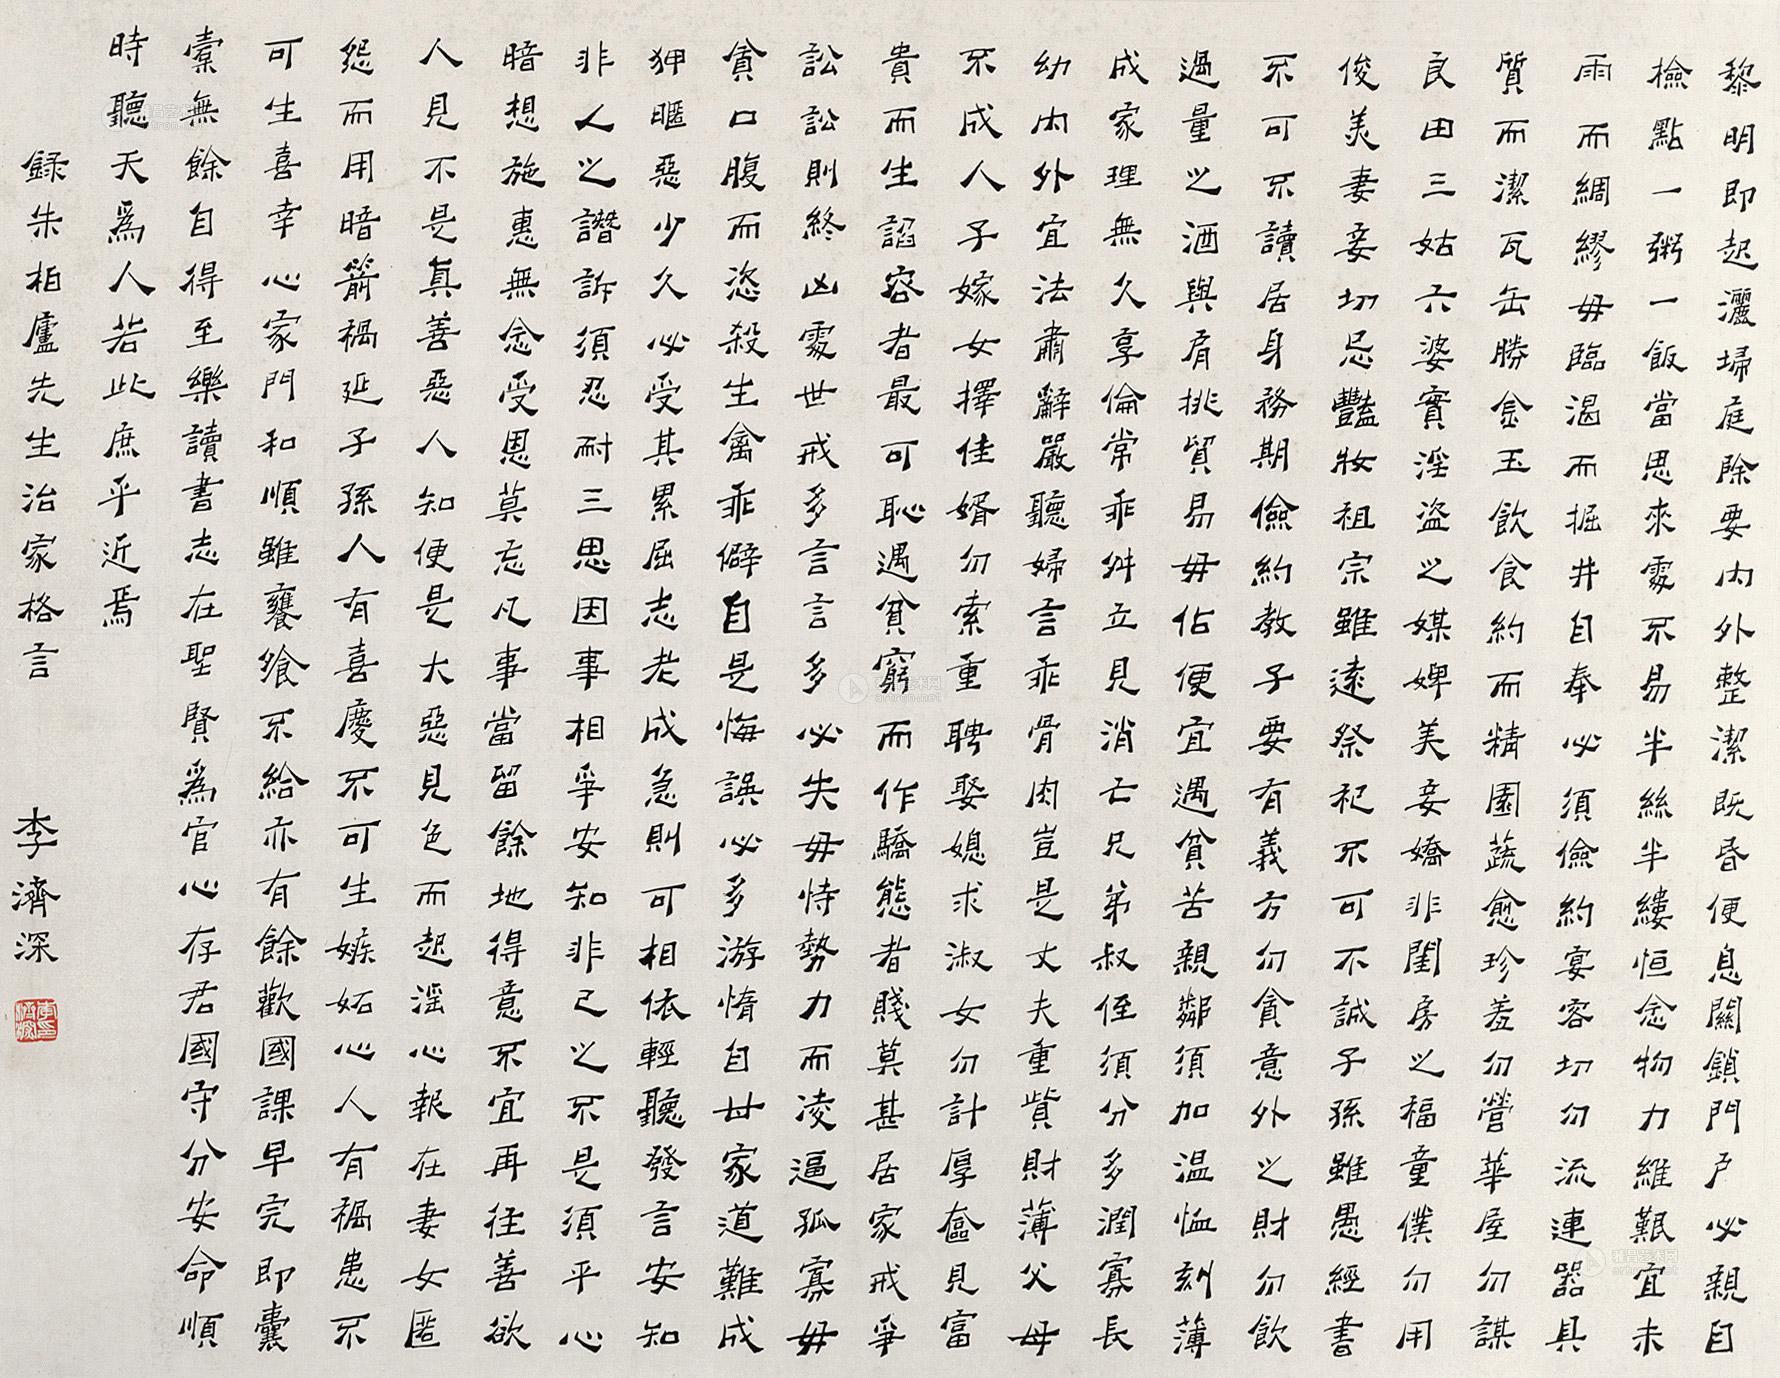 黎明即起灑埽庭除要内外整潔既昏便息關鎖門户必親自
檢點一粥一飯當思來處不易半絲半縷恒念物力維艱宜未
雨而綢繆毋臨渴而掘井自奉必須儉約宴客切勿流連器具
質而潔瓦缶勝金玉飲食約而精園蔬愈珍羞勿營華屋勿謀
良田三姑六婆實淫盗之媒婢美妾嬌非閨房之福童僕勿用
俊美妻妾切忌豔妝祖宗雖遠祭祀不可不誠子孫雖愚經書
不可不讀居身務期儉約教子要有義方勿貪意外之財勿飲
過量之酒與肩挑貿易毋佔便宜遇貧苦親鄰須加温恤刻薄
成家理無久享倫常乖舛立見消亡兄弟叔侄須分多潤寡長
幼内外宜法肅辭嚴聽婦言乖骨肉豈是丈夫重貲財薄父母
不成人子嫁女擇佳婿勿索重聘娶媳求淑女勿計厚奩見富
貴而生諂容者最可恥遇貧窮而作驕態者賤莫甚居家戒爭
訟訟則終凶處世戒多言言多必失毋恃勢力而凌逼孤寡毋
貪口腹而恣殺生禽乖僻自是悔誤必多游惰自甘家道難成
狎暱惡少久必受其累屈志老成急則可相依輕聽發言安知
非人之譖訴須忍耐三思因事相爭安知非己之不是須平心
暗想施惠無念受恩莫忘凡事當留餘地得意不宜再往善欲
人見不是真善惡人知便是大惡見色而起淫心報在妻女匿
怨而用暗箭禍延子孫人有喜慶不可生嫉妬心人有禍患不
可生喜幸心家門和順雖饔飧不給亦有餘歡國課早完即囊
橐無餘自得至樂讀書志在聖賢爲官心存君國守分安命順
時聽天爲人若此庶乎近焉
録朱柏廬先生治家格言
李濟深